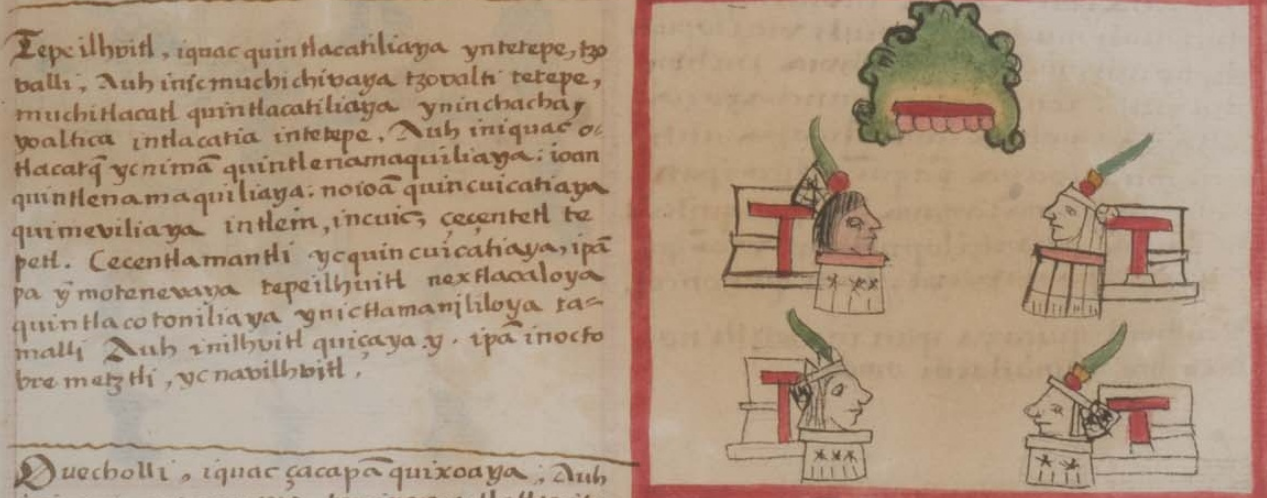 Tepeilhuitl, iquac quintlacatiliaya yntetepe, tzo
valli, Auh inic muchichivaya tzovalli tetepe,
muchitlacatl quintlacatiliaya yninchacha,
yoaltica intlacatia intetepe. Auh iniquac o
tlacatq̃ ycnimã quintlenamaquiliaya: ioan
quintlenamaquiliaya: noioã quincuicatiaya
quimeviliaya intlein, incuic, çeçentetl te
petl. Cecentlamantli ycquincuicatiaya, ipã
pa ỹ motenevaya tepeilhuitl nextlacaloya
quintlacotoniliaya ynictlamanililoya ta=
malli Auh inilhvitl quiçaya.y. ipã inocto
bre metztli, ycnavilhvitl.
Quecholli, iquac çacapã quixoaya; Auh